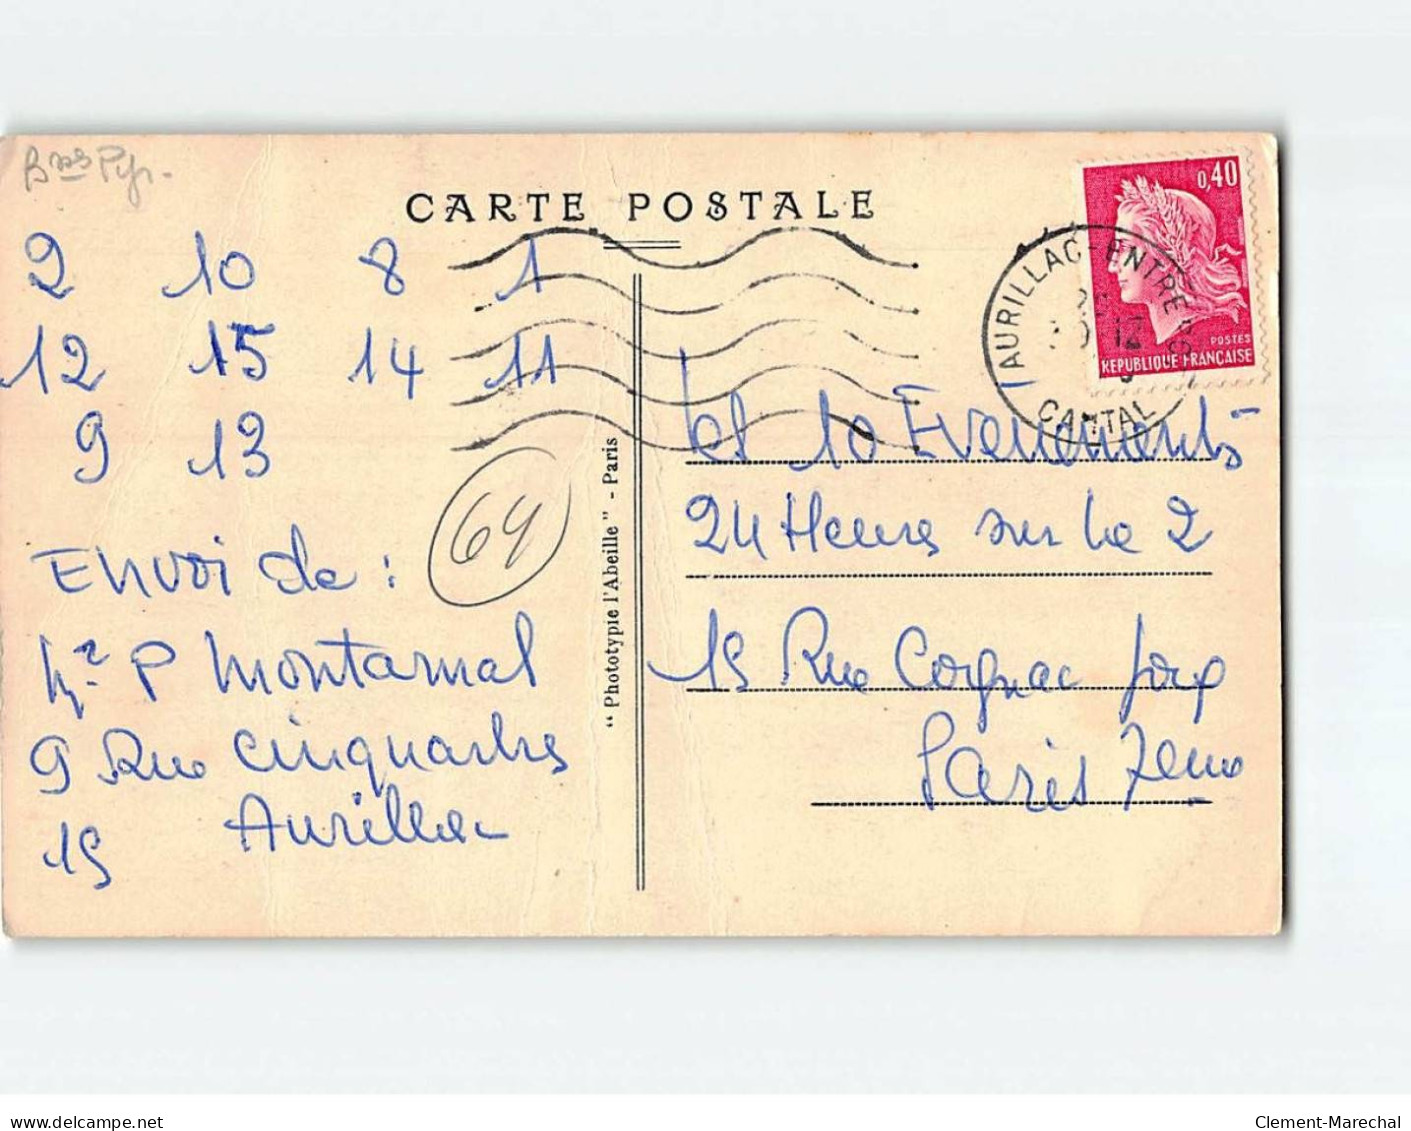 Bses Pyr.
CARTE POSTALE
0,40
POSTES
REPUBLIQUE FRANÇAISE
AURILLAC-ENTREPOT
CANTAL
2 10 8 1
12 15 14 11
9 13
64
Envoi de :
Mr P Montarnal
9 Rue Cinquarbres
15 Aurillac
"Phototypie l'Abeille" - Paris
Les 10 Evenements
24 Heures sur la 2
15 Rue Cognac Jay
Paris 7eme
delcampe.net
Clement-Marechal